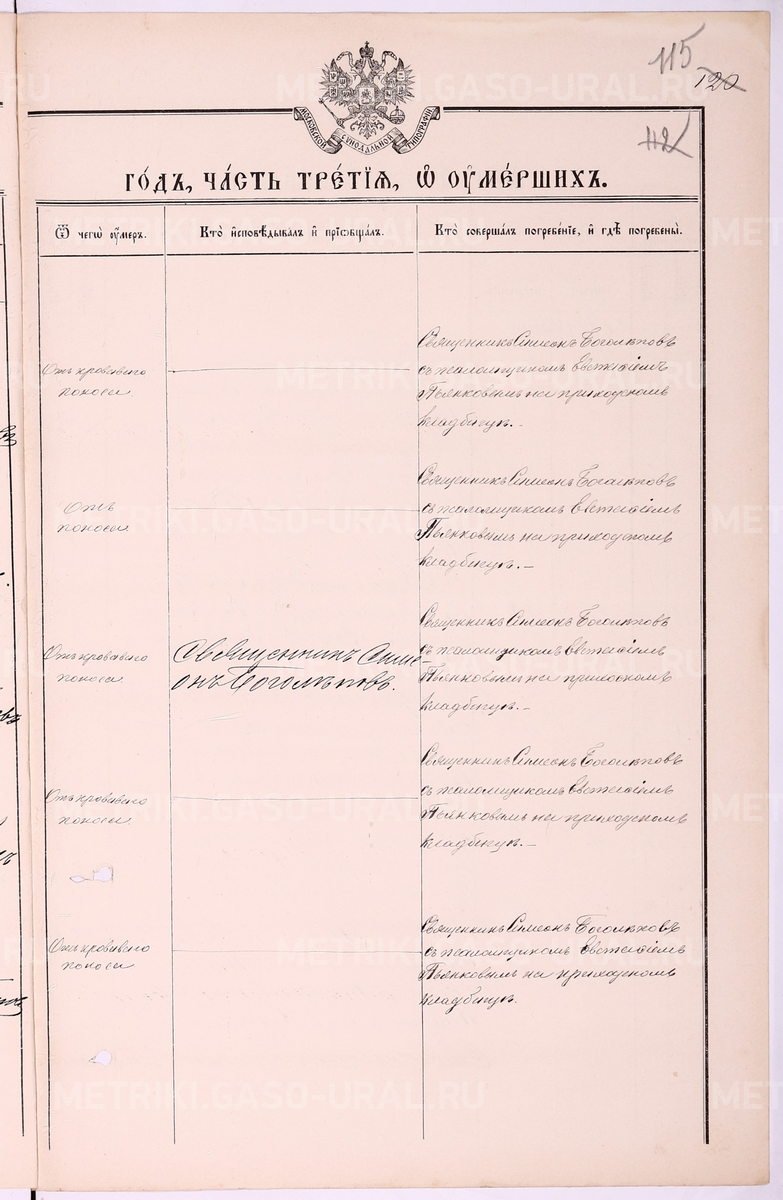 115
120
112
МОСКОВСКОЙ СѴНОДАЛЬНОЙ ТИПОГРАФІИ
ГО́ДЪ, ЧА́СТЬ ТРЕ́ТІѦ, Ѡ ОУ҆МЕ́РШИХЪ.
Ѿ чегѡ̀ ᲂу҆́меръ.
Кто̀ и҆сповѣ́дывалъ и҆ прїѡбща́лъ.
Кто̀ соверша́лъ погребе́нїе, и҆ гдѣ̀ погребены̀.
Отъ кроваваго
поноса
Священникъ Симеонъ Боголѣповъ
съ псаломщикомъ Евгеніемъ
Пьянковымъ на приходскомъ
кладбищѣ. –
Отъ
поноса
Священникъ Симеонъ Боголѣповъ
съ псаломщикомъ Евгеніемъ
Пьянковымъ на приходскомъ
кладбищѣ. –
Отъ кроваваго
поноса
Священникъ Симе-
онъ Боголѣповъ.
Священникъ Симеонъ Боголѣповъ
съ псаломщикомъ Евгеніемъ
Пьянковымъ на приходскомъ
кладбищѣ. –
Отъ кроваваго
поноса
Священникъ Симеонъ Боголѣповъ
съ псаломщикомъ Евгеніемъ
Пьянковымъ на приходскомъ
кладбищѣ. –
Отъ кроваваго
поноса
Священникъ Симеонъ Боголѣповъ
съ псаломщикомъ Евгеніемъ
Пьянковымъ на приходскомъ
кладбищѣ.
METRIKI.GASO-URAL.RU